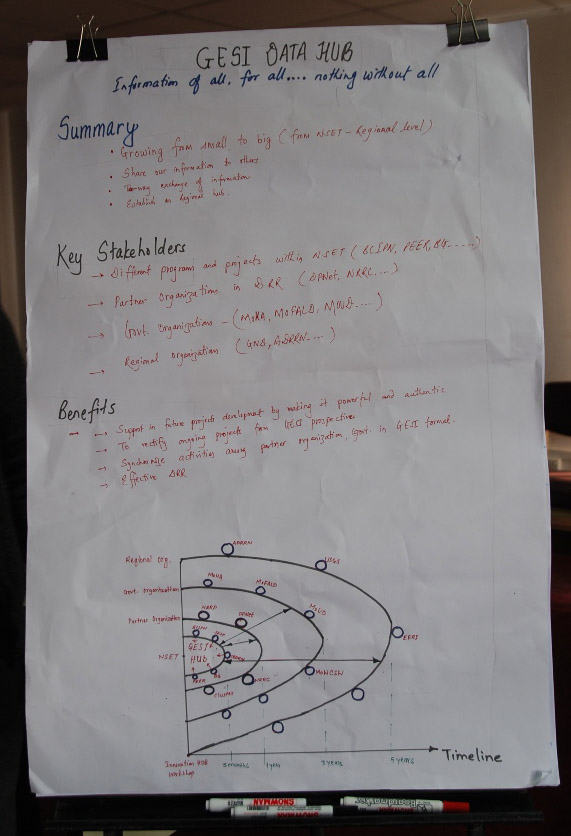 GESI DATA HUB
Information of all, for all.... nothing without all
Summary
• Growing from small to big (from NSET - Regional level)
• Share our information to others
• Two way exchange of information
• Establish as Regional hub.
Key Stakeholders
→ Different programs and projects within NSET (BCIPN, PEER, .....)
→ Partner Organizations in DRR (DPNet, NRRC, ...)
→ Govt. Organizations - (MoHA, MoFALD, MoUD ....)
→ Regional organization (GND, ADRRN....)
Benefits
→ Support in future projects development by making it powerful and authentic
→ To rectify ongoing projects from GESI prospectives
→ Synchronize activities among partner organization, Govt. in GESI format.
→ Effective DRR
ADRRN
Regional Org.
USGS
MoHA
MoFALD
Govt. Organization
NARRP
DPNet
MoUD
Partner Organization
GESI
EERI
NSET
HUB
MoWCSW
PEER
NRRC
Innovation HUB
Workshop
3 months
1 year
3 years
5 years
Timeline
SNOWMAN
SNOWMAN